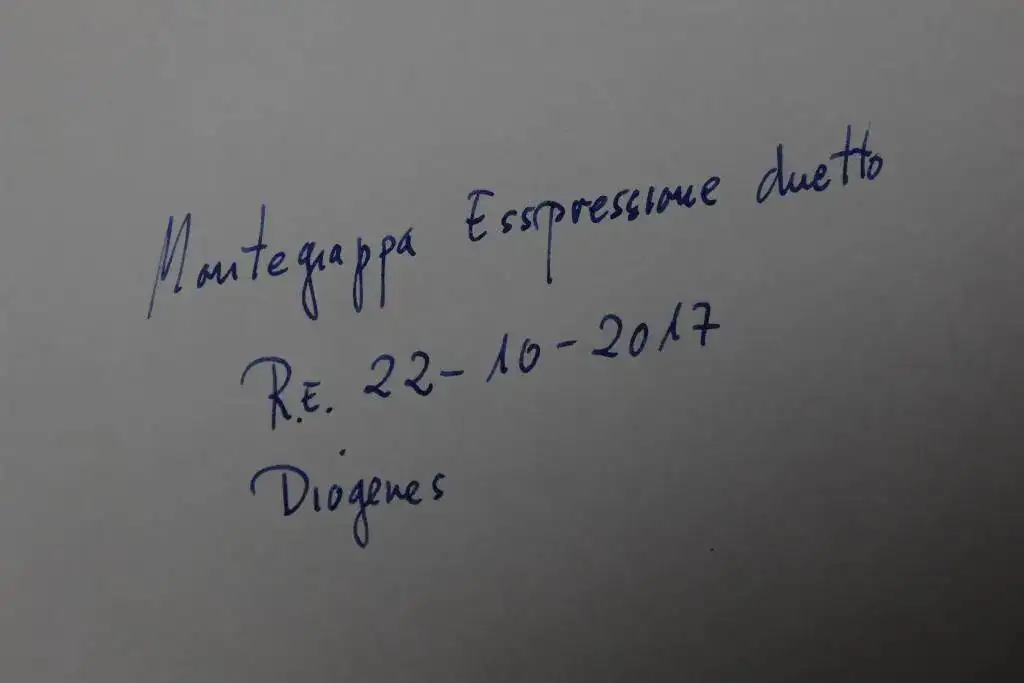 Montegrappa Esspressione duetto
R.E. 22-10-2017
Diógenes